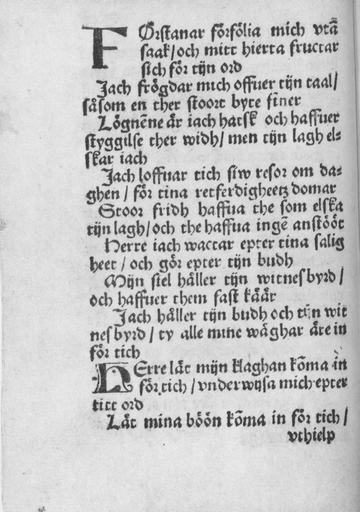 FØrstanar förfölia mich vtã
saak/och mitt hierta fructar
sich för tijn ord
Jach frögdar mich offuer tijn taal/
såsom en ther stoort byte finer
Lögnẽne är iach hatsk och haffuer
styggilse ther widh/men tijn lagh el⸗
skar iach
Jach loffuar tich siw resor om da⸗
ghen/för tina retferdigheetz domar
Stoor fridh haffua the som elska
tijn lagh/och the haffua ingẽ anstööt
Herre iach wactar epter tina salig
heet/och gör epter tijn budh
Mijn siel håller tijn witnesbyrd/
och haffuer them fast käär
Jach håller tijn budh och tijn wit
nesbyrd/ty alle mine wäghar äre in
för tich
HErre låt mijn klaghan kõma in
för tich/vnderwijsa mich epter
titt ord
Låt mina böön kõma in för tich/
vthielp